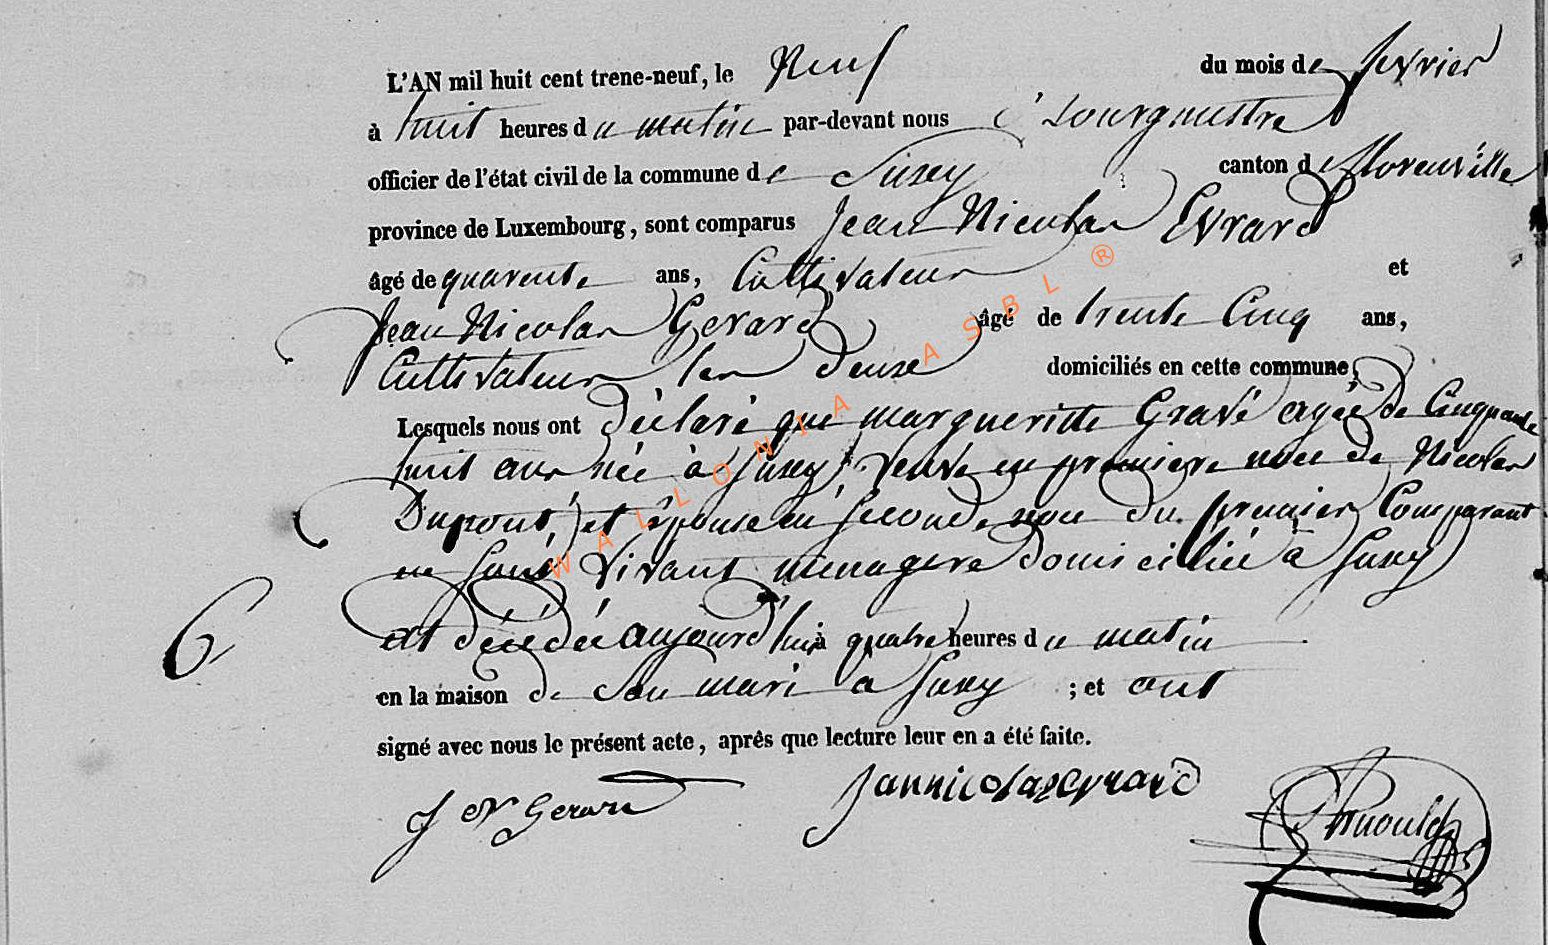 L'AN mil huit cent trene-neuf, le Neuf du mois de fevrier
à huit heures du matin par-devant nous Bourgmestre
officier de l'état civil de la commune de Suxey canton de florenville
province de Luxembourg, sont comparus Jean Nicolas Evrard
âgé de quarente ans, Cultivateur et
Jean Nicolas Gerard âgé de trente Cinq ans,
Cultivateur les deuxe domiciliés en cette commune,
Lesquels nous ont déclaré que margueritte Gravé agée de Cinquante
huit ans née à Suxey, veuve en premiere noce de Nicolas
Dupont, et épouse en seconde noce du premier Comparant
vivant menagere domiciliée à Suxey
est décédée aujourd'hui à quatre heures du matin
en la maison de son mari a Suxey ; et ont
signé avec nous le présent acte, après que lecture leur en a été faite.
6
J N Gerard Jannicolas evrard
WALLONIA ASBL ®